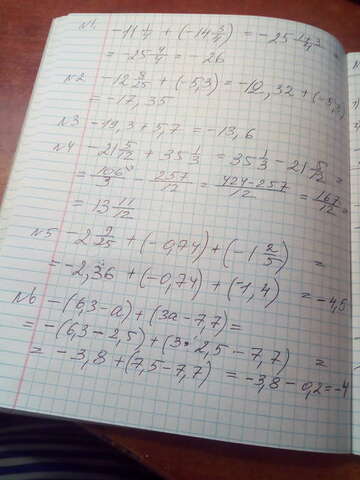 №1. -11 1/4 + (-14 3/4) = -25
= -25 4/4 = -26
№2 -12 8/25 + (-5,3) = -12,32 + (-5,3)
= -17,35
№3 -19,3 + 5,7 = -13,6
№4 -21 5/12 + 35 1/3 = 35 1/3 - 21 5/12 =
= 106/3 - 257/12 = 424-257/12 = 167/12 =
= 13 11/12
№5 -2 9/25 + (-0,74) + (-1 2/5) =
= -2,36 + (-0,74) + (-1,4) = -4,5
№6 -(6,3-a) + (3a-7,7) =
= -(6,3-2,5) + (3·2,5-7,7) =
= -3,8 + (7,5-7,7) = -3,8-0,2=-4